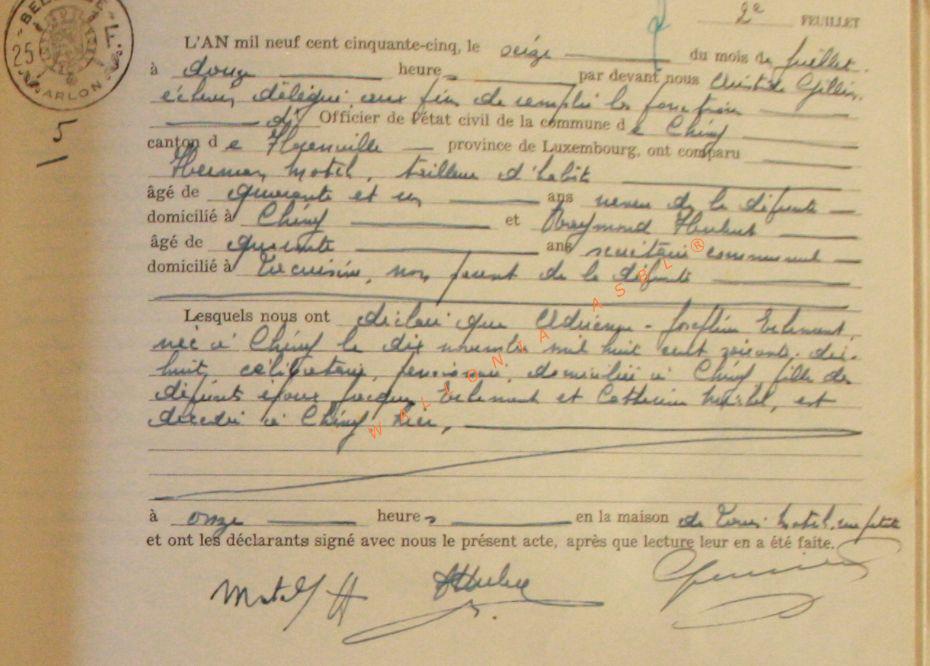 2e FEUILLET
25 F.
ARLON
15
L'AN mil neuf cent cinquante-cinq, le seize du mois de juillet
à douze heures par devant nous Gillin,
échevin délégué aux fins de remplir les fonctions
d' Officier de l'état civil de la commune de Chiny
canton de Florenville province de Luxembourg, ont comparu
Herman Motch, tailleur d'habits
âgé de quarante et un ans neveu de la défunte
domicilié à Chiny et Raymond Hubert
âgé de quarante ans secrétaire communal
domicilié à , non parent de la défunte
Lesquels nous ont déclaré que Adrienne - Joséphine
née à Chiny le dix novembre mil huit cent soixante-dix-
huit, célibataire, pensionnée, domiciliée à Chiny, fille des
défunts époux Jacques et Catherine , est
décédée à Chiny hier,
à onze heures en la maison de Motch,
et ont les déclarants signé avec nous le présent acte, après que lecture leur en a été faite.
WALLONIA ASBL®